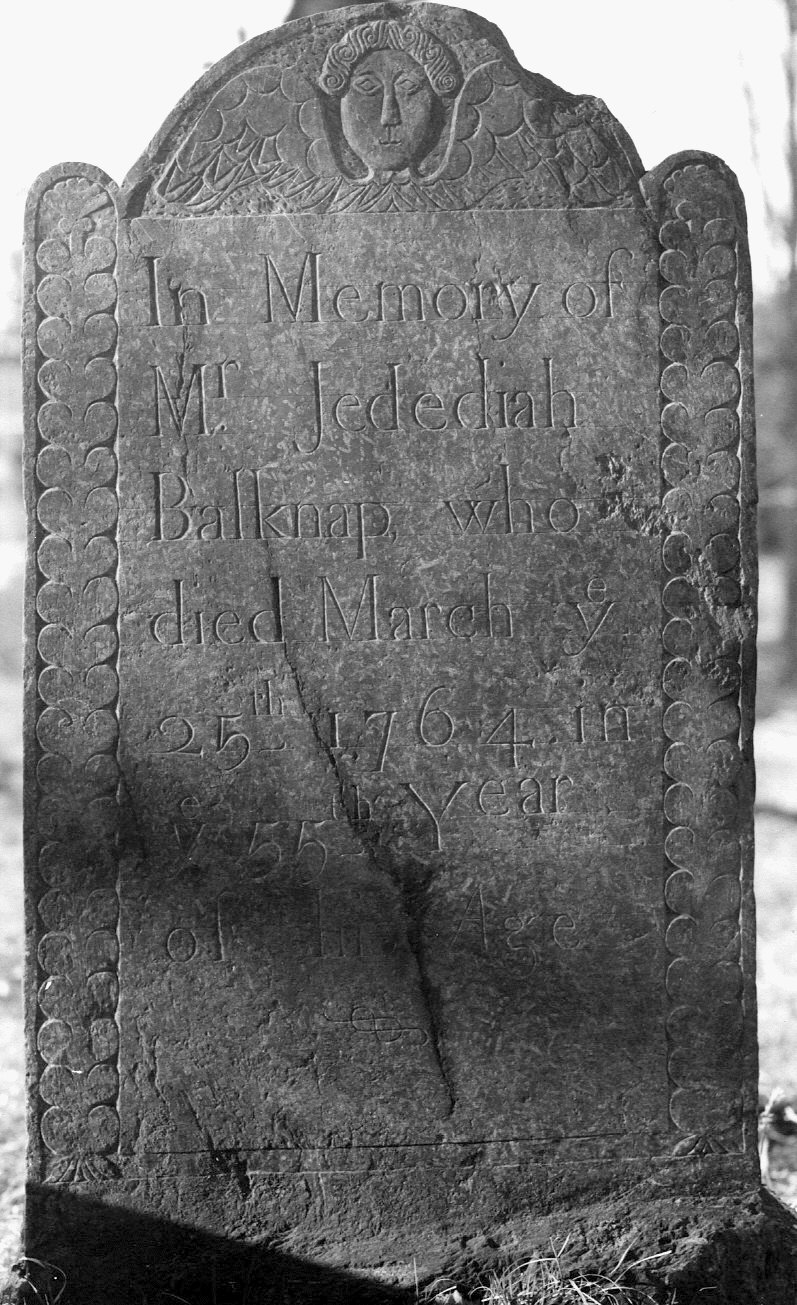 In Memory of
Mr. Jedediah
Balknap, who
died March ye
25th 1764. in
ye 55th Year
of his Age